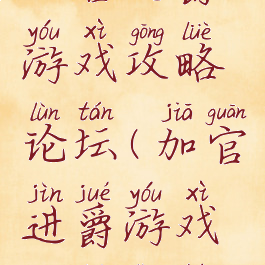 yóu xì gōng lüè
游戏攻略
lùn tán jiā guān
论坛(加官
jìn jué yóu xì
进爵游戏